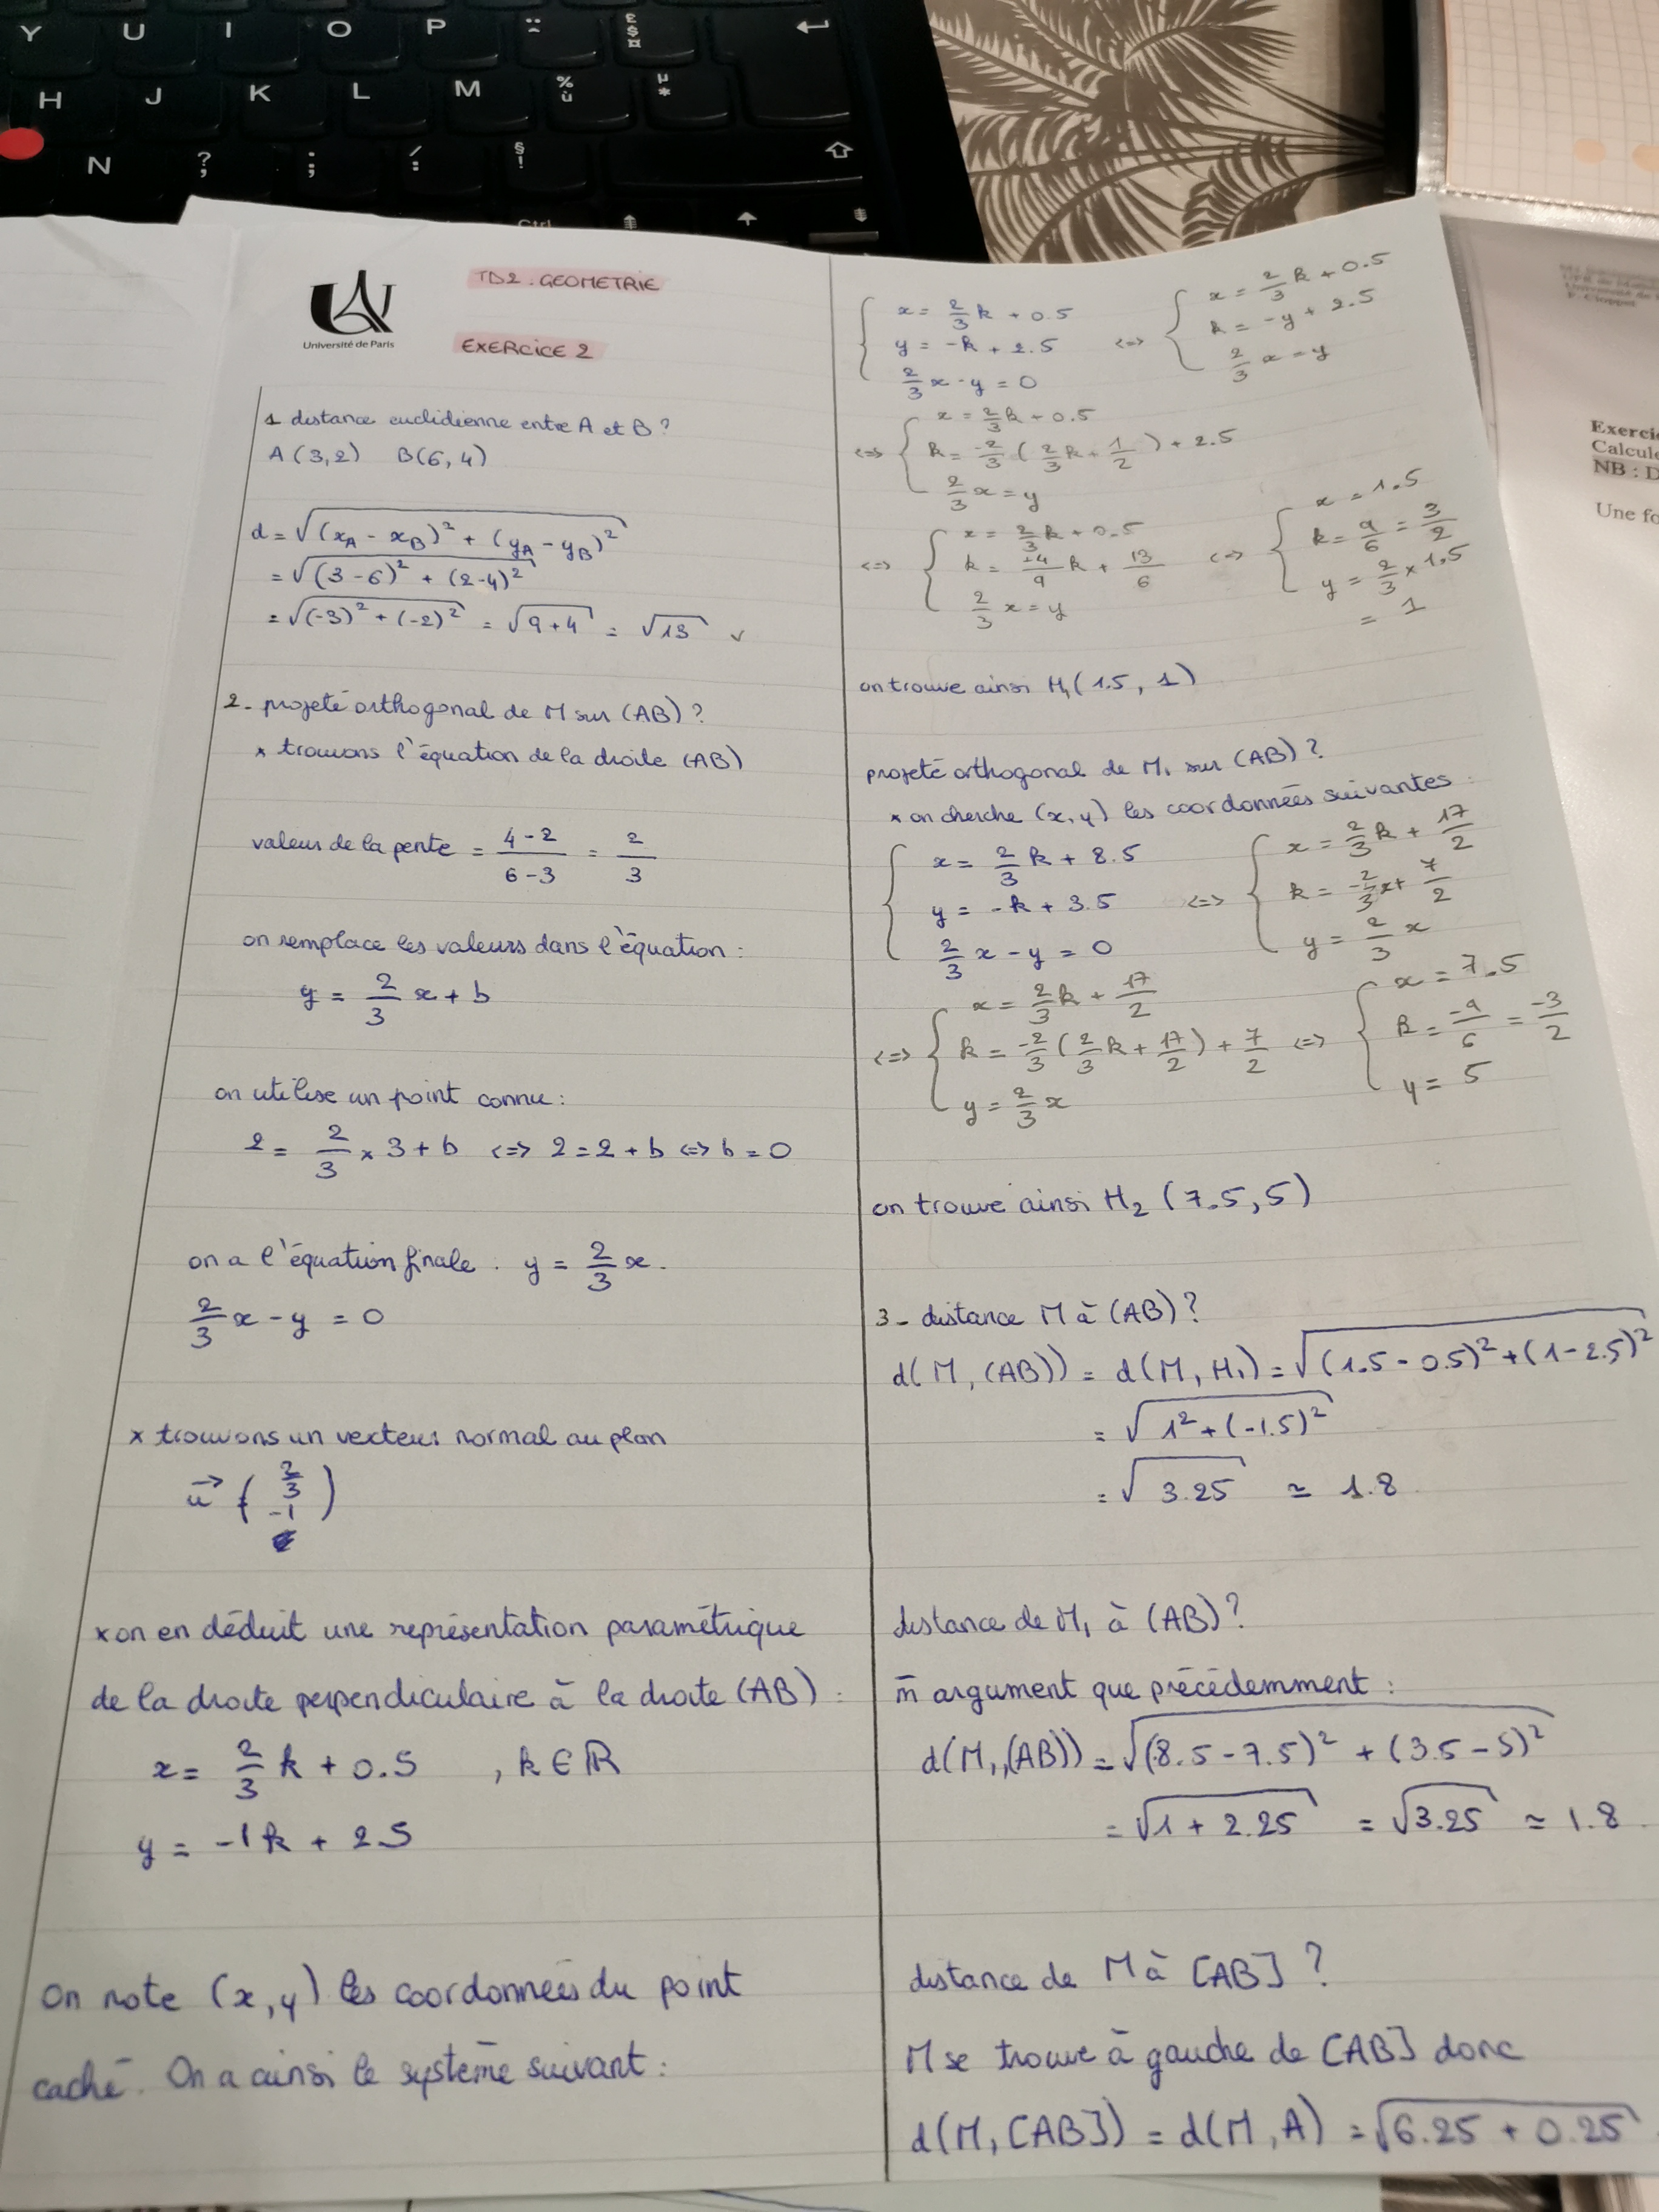 Y U I O P ¨ ^ £ $ ¤
H J K L M % ù µ *
N ? ; : / ! §
Ctrl
Université de Paris
TD2. GEOMETRIE
EXERCICE 2
1 distance euclidienne entre A et B ?
A(3,2) B(6,4)
d = √((xA - xB)² + (yA - yB)²)
= √((3-6)² + (2-4)²)
= √((-3)² + (-2)²) = √(9+4) = √13 ✓
2- projeté orthogonal de M sur (AB) ?
* trouvons l'équation de la droite (AB)
valeur de la pente = (4-2)/(6-3) = 2/3
on remplace les valeurs dans l'équation :
y = 2/3 x + b
on utilise un point connu :
2 = 2/3 × 3 + b <=> 2 = 2 + b <=> b = 0
on a l'équation finale : y = 2/3 x.
2/3 x - y = 0
* trouvons un vecteur normal au plan
u→ (2/3 -1)
* on en déduit une représentation paramétrique
de la droite perpendiculaire à la droite (AB) :
x = 2/3 k + 0.5 , k ∈ ℝ
y = -1k + 2.5
On note (x,y) les coordonnées du point
caché. On a ainsi le système suivant :
{ x = 2/3 k + 0.5 <=> { x = 2/3 k + 0.5
y = -k + 2.5 k = -y + 2.5
2/3 x - y = 0 2/3 x = y
<=> { x = 2/3 k + 0.5
k = -2/3 (2/3 k + 1/2) + 2.5
2/3 x = y
<=> { x = 2/3 k + 0.5 <=> { x = 1.5
k = -4/9 k + 13/6 k = 9/6 = 3/2
2/3 x = y y = 2/3 × 1.5
= 1
on trouve ainsi H1(1.5, 1)
projeté orthogonal de M1 sur (AB) ?
* on cherche (x,y) les coordonnées suivantes :
{ x = 2/3 k + 8.5 <=> { x = 2/3 k + 17/2
y = -k + 3.5 k = -2/3 x + 7/2
2/3 x - y = 0 y = 2/3 x
<=> { x = 2/3 k + 17/2 <=> { x = 7.5
k = -2/3 (2/3 k + 17/2) + 7/2 k = -9/6 = -3/2
y = 2/3 x y = 5
on trouve ainsi H2 (7.5, 5)
3- distance M à (AB) ?
d(M, (AB)) = d(M, H1) = √((1.5 - 0.5)² + (1 - 2.5)²)
= √(1² + (-1.5)²)
= √3.25 ≃ 1.8
distance de M1 à (AB) ?
m̄ argument que précédemment :
d(M1,(AB)) = √((8.5 - 7.5)² + (3.5 - 5)²)
= √(1 + 2.25) = √3.25 ≃ 1.8
distance de M à [AB] ?
M se trouve à gauche de [AB] donc
d(M, [AB]) = d(M, A) = √(6.25 + 0.25)
Université de
F. Cloppet
Exerci
Calcule
NB : D
Une fo